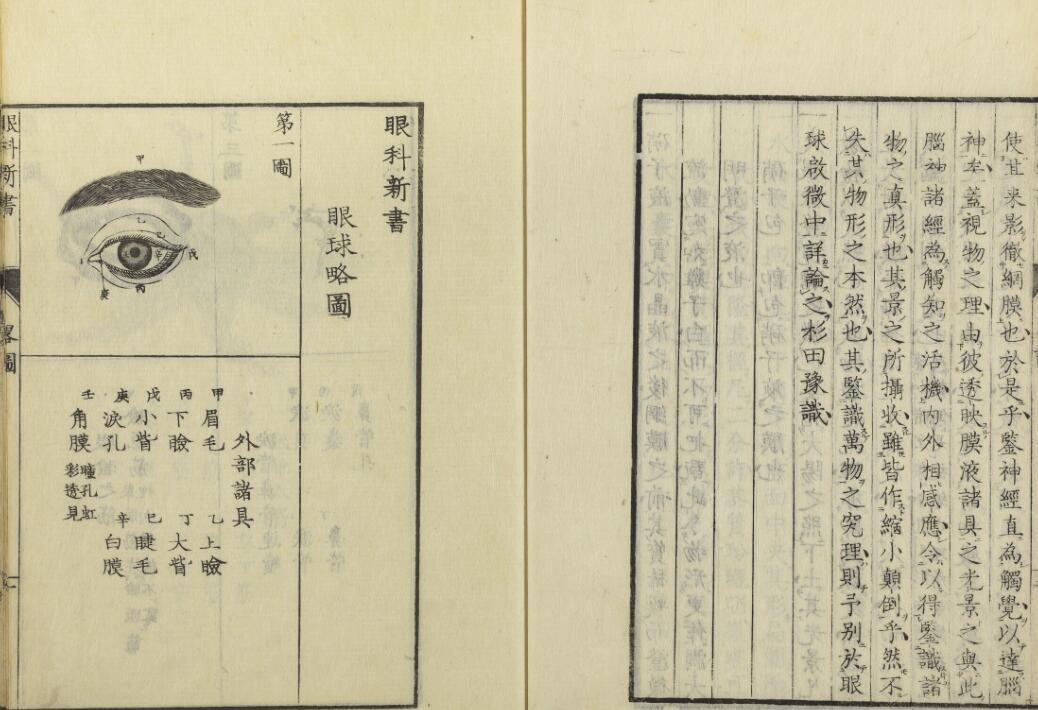 使其来影徹綱膜也於是乎鑒神經直為觸覺以達腦
神蓋視物之理由彼透映膜液諸具之光景之與此
腦神諸經為觸知之活機内外相感應令以得鑒識諸
物之真形也其景之所攝收雖皆作縮小顛倒乎然不
失其物形之本然也其鑒識萬物之究理則予別於眼
球啟微中詳論之杉田豫識
眼科新書
眼球略圖
第一圖
甲
乙
己
戊
辛
丙
庚
外部諸具
甲眉毛 乙上瞼
丙下瞼 丁大眥
戊小眥 己睫毛
庚涙孔 辛白膜
壬角膜 瞳孔虹
彩透見
眼科新書
畧圖